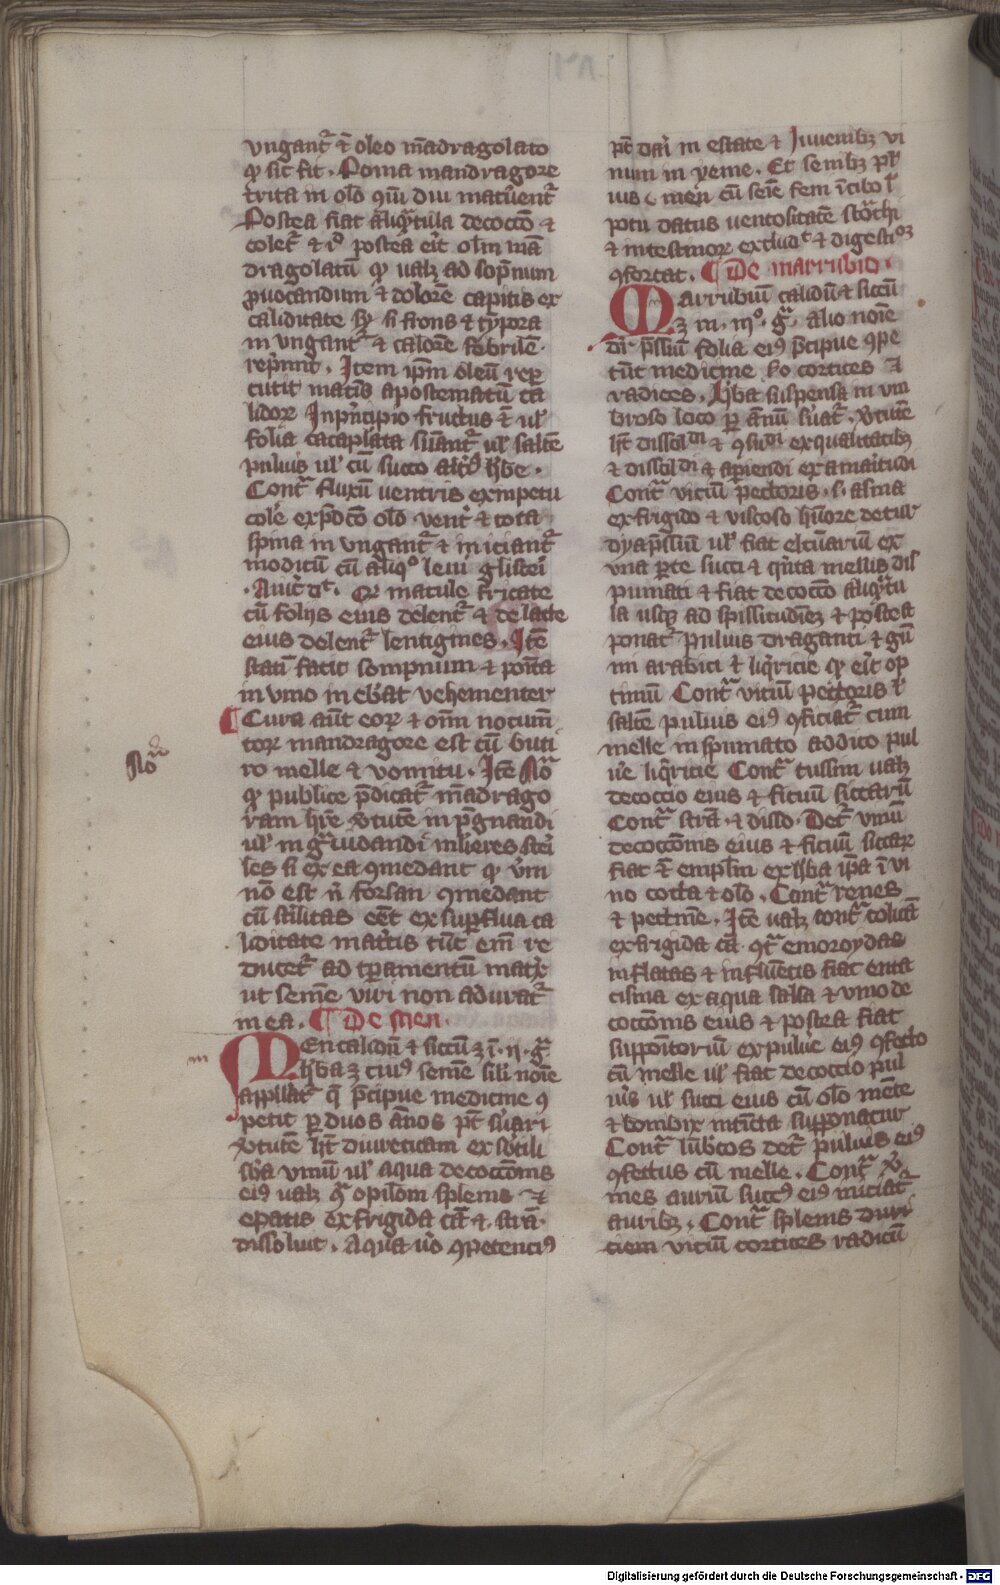 vngant᷑ c̄ oleo mādragolato
qd̕ sic fit. Poma mandragore
trita in olo qm̄ diu mat̕ent᷑
Postea fiat aliqͣtula decoccō ⁊
colet᷑ ⁊ id̕ postea eīt olm mā
dragolatū qd̕ ualꝫ ad sopnum
ꝓuocandum ⁊ dolorē capitis ex
caliditate si frons ⁊ tꝑpora
in vngant᷑ ⁊ calorē febrilē
rep̕mit. Itē ipm̄ oleū reꝑ
cutit mat̕is apostematum ca
lidoꝝ In pͥncipio fructus ē ul̕
folia cataplata suant᷑ ul̕ saltē
puluis ul̕ cū succo alic̕ hͤbe.
Contͣ fluxū uentris ex impetu
cole ex p̄dcō olo vent̕ ⁊ tota
spina in vngant᷑ ⁊ iniciant᷑
modicū cū aliqͦ leui glisteri
Auic̕ dt̕. Qd̕ macule fricate
cū folijs eius delent᷑ ⁊ de lacte
eius delent᷑ lentigines. Itē
statī facit sompnum ⁊ poīta
in vino inebͥat vehementer
¶ Cura aūt eoꝝ ⁊ om̄ nocum̄
toꝝ mandragore est cū buti
No᷑
ro melle ⁊ vomitu. Itē No᷑
qd̕ publice p̄dicat᷑ mādrago
ram hr̄e v̕tutē inp̄gnandi
ul̕ in gͣuidandi mlieres steri
les si ex ea ꝯmedant qd̕ v̕m
nō est n̄ forsan ꝯmedant
cū st̕ilitas eēt ex suꝑflua ca
liditate mat̕cis tūc em̄ re
ducet᷑ ad tꝑamentū matͥx
ut semē viri non adurat᷑
in ea. ¶ De men.
m
MEn calidū ⁊ siccū ꝫ ī. ij. gͣ
hͤba ꝫ cui᷒ semē sili noīe
appllat᷑ qͥ p̄cipue medicine ꝯ
petit ꝑ duos ānos pt̄ s̕uari
v̕tutē hꝫ diureticam ex s̕btili
sb̕a vinū ul̕ aqua decoccōis
ei᷒ ualꝫ ꝯͣ opilom̄ splenis ⁊
epatis ex frigida cā ⁊ strā.
dissoluit. Aqua u̕o ꝯpetenci᷒
pt̄ dari in estate ⁊ Iuuenibꝫ vi
num in yeme. Et senibꝫ pul
uis men cū seīe fem̄ ī cibo ul̕
potu datus uentositatē stōchi
⁊ intestinoꝝ excludᵗ ⁊ digestioꝫ
ꝯfortat. ¶ De marrubio.
MArrubiū calidū ⁊ siccū
ꝫ in. iijͦ. gͣ. alio noīe
dr̄ pͣssiū folia ei᷒ p̄cipue ꝯpe
tūt medicine s̕o cortices ⁊
radices. Hͤba suspensa in vm
broso loco ꝑ annū s̕uat᷑. v̕tutē
hꝫ dissolᵈⁱ ⁊ ꝯsuᵈⁱ ex qualitatibꝫ
⁊ dissolᵈⁱ ⁊ aꝑiendi ex amaritudī
Contͣ viciū pectoris. s. asma
ex frigido ⁊ viscoso hūore detur
dyapͣssiū ul̕ fiat elcuariū ex
vna ꝑte succi ⁊ qͥnta mellis dis
pumati ⁊ fiat decoccō aliqͣtu
la usqꝫ ad spissitudinē ⁊ postea
ponat᷑ puluis draganti ⁊ gū
mi arabici ⁊ liqͥricie qd̕ eīt op
timū Contͣ viciū pectoris ul̕
saltē puluis ei᷒ ꝯficiat᷑ cum
melle inspumato addito pul
u̕e liqͥricie Contͣ tussim ualꝫ
decoccio eius ⁊ ficuū siccarū
Contͣ strā. ⁊ disso. Det᷑ vinū
decoccōis eius ⁊ ficuū siccaꝝ
fiat ē emplm̄ ex hͤba ipͣa ī vi
no cocta ⁊ olo. Contͣ renes
⁊ pectinē. Itē ualꝫ contͣ colicā
ex frigida cā ꝯͣ emoroydas
inflatas ⁊ influentis fiat enca
tisma ex aqua salsa ⁊ vino de
coccōis eius ⁊ postea fiat
suppōitoriū ex pulu̕e ei᷒ ꝯfecto
cū melle ul̕ fiat decoccio pul
u̕is ul̕ succi eius cū olo mēte
⁊ bombix intīcta supponatur
Contͣ lūbͥcos det᷑ puluis ei᷒
ꝯfectus cū melle. Contͣ v̕
mes auriū succ᷒ ei᷒ iniciat᷑
auribꝫ. Contͣ splenis duri
ciem viciū cortices radicū
Digitalisierung gefördert durch die Deutsche Forschungsgemeinschaft - DFG